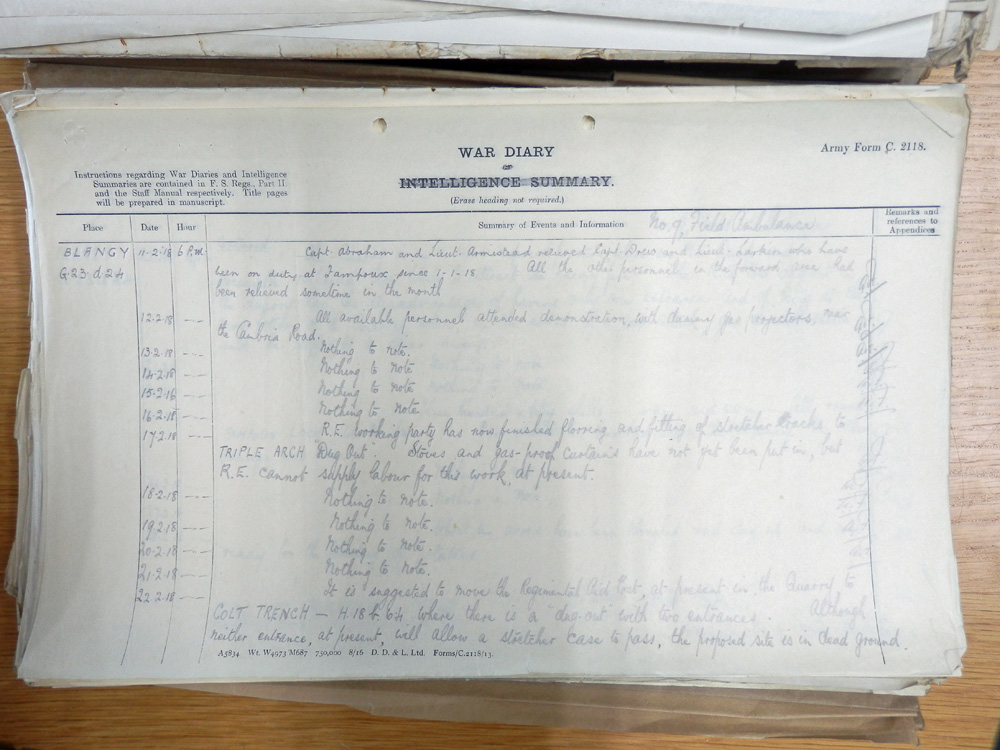 WAR DIARY
or
INTELLIGENCE SUMMARY.
(Erase heading not required.)
Army Form C. 2118.
Instructions regarding War Diaries and Intelligence
Summaries are contained in F. S. Regs., Part II
and the Staff Manual respectively. Title pages
will be prepared in manuscript.
Place Date Hour Summary of Events and Information No. 9 Field Ambulance Remarks and
references to
Appendices
BLANGY 11-2-18 6 P.M. Capt. Abraham and Lieut. Armistead relieved Capt. Drew and Lieut. Larkin who have
G.23.d.24 been on duty at Fampoux since 1-1-18. All the other personnel in the forward area had
been relieved sometime in the month
12.2.18 --- All available personnel attended demonstration, with dummy gas projectors, near
the Cambrai Road.
13.2.18 --- Nothing to note.
14-2-18 --- Nothing to note
15-2-18 --- Nothing to note
16-2-18 --- Nothing to note
17.2.18 R.E. working party has now finished flooring and fitting of stretcher racks to
TRIPLE ARCH "Dug Out". Stoves and gas-proof curtains have not yet been put in, but
R.E. cannot supply labour for this work, at present.
18-2-18 --- Nothing to note.
19.2.18 --- Nothing to note.
20-2-18 --- Nothing to note.
21-2-18 --- Nothing to note.
22.2-18 --- It is suggested to move the Regimental Aid Post, at present in the Quarry to
COLT TRENCH — H.18.b.64 where there is a "dug-out" with two entrances. Although
neither entrance, at present, will allow a stretcher case to pass, the proposed site is in dead ground.
A5834 Wt. W4973 M687 750,000 8/16 D. D. & L. Ltd. Forms/C.2118/13.